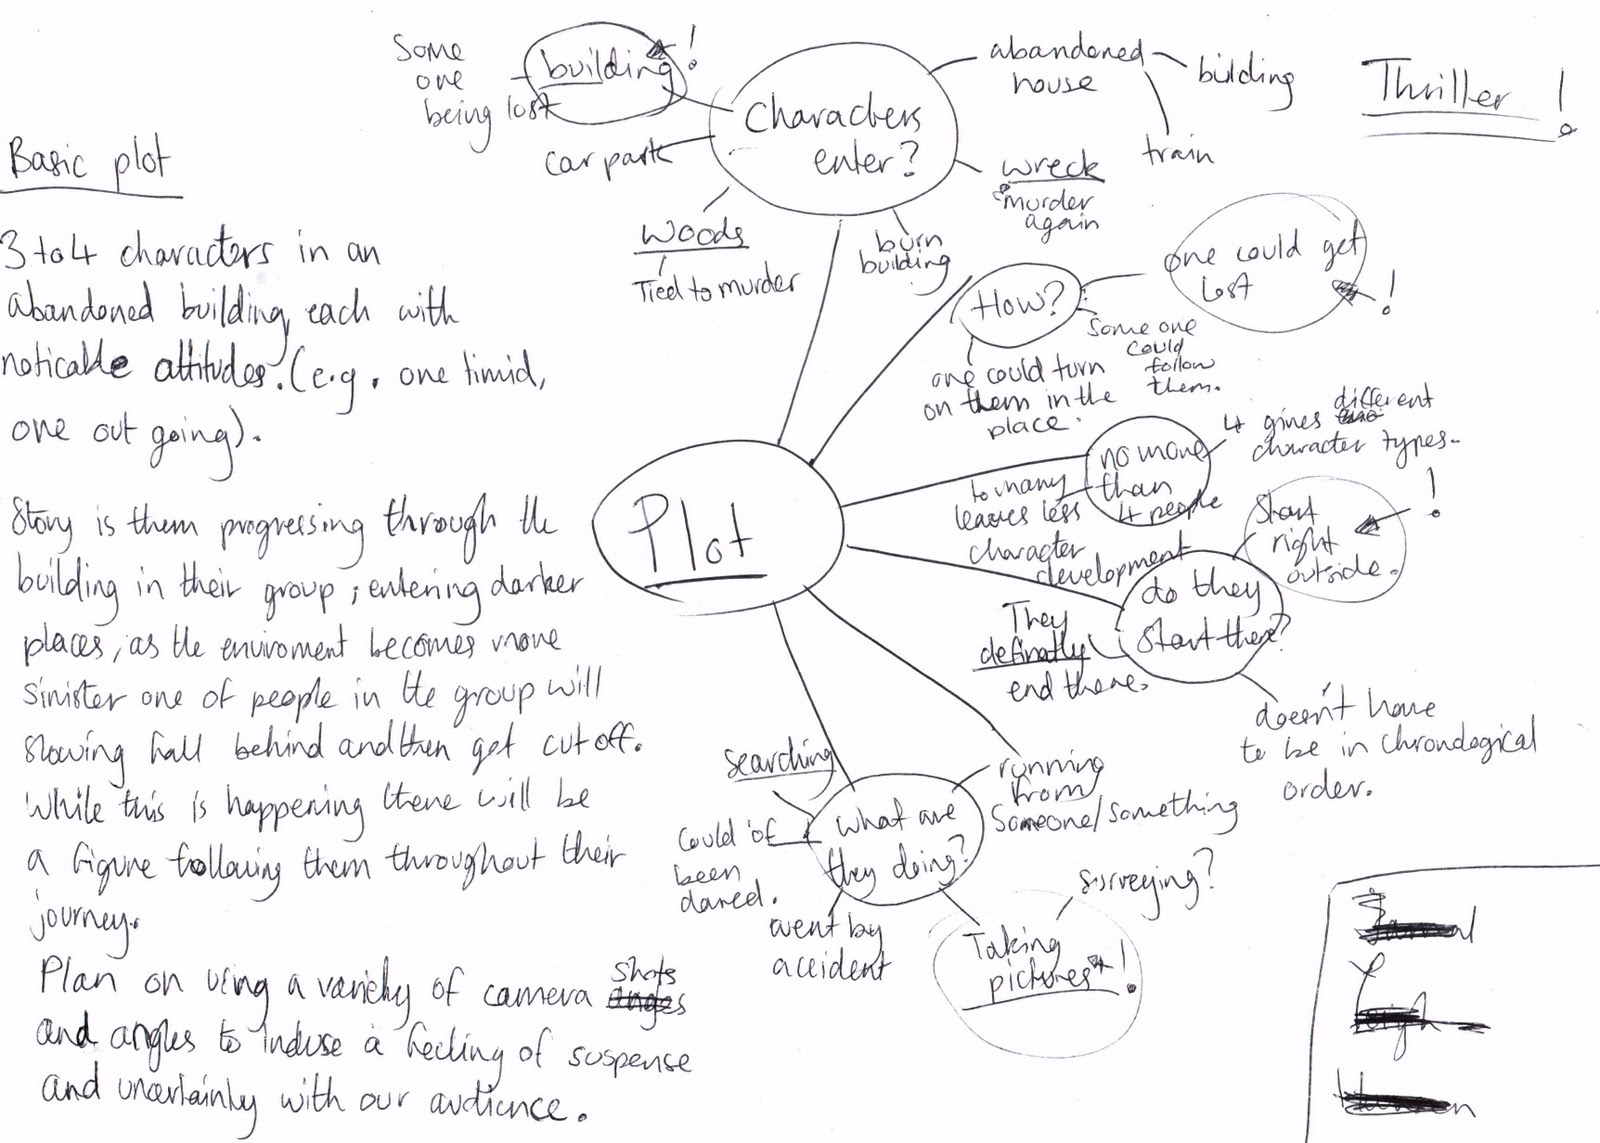 Thriller !
Basic plot
3 to 4 characters in an
abandoned building, each with
noticable attitudes. (e.g. one timid,
one out going).
Story is them progressing through the
building in their group, entering darker
places, as the enviroment becomes more
sinister one of people in the group will
slowing fall behind and then get cut off.
While this is happening there will be
a figure following them throughout their
journey.
Plan on using a variety of camera shots
and angles to induse a feeling of suspense
and uncertainty with our audience.
Plot
Characters
enter?
building !
Some
one
being lost
car park
Woods
Tied to murder
burn
building
wreck
murder
again
abandoned
house
building
train
How?
one could get
lost
!
Some one
could
follow
them.
one could turn
on them in the
place.
no more
than
4 people
4 gives different
character types.
to many
leaves less
character
development
do they
start there?
Start
right
outside.
!
They
definatly
end there.
doesn't have
to be in chronological
order.
what are
they doing?
searching
running
from
Someone/something
Could of
been
dared.
went by
accident
Taking
pictures !
surveying?